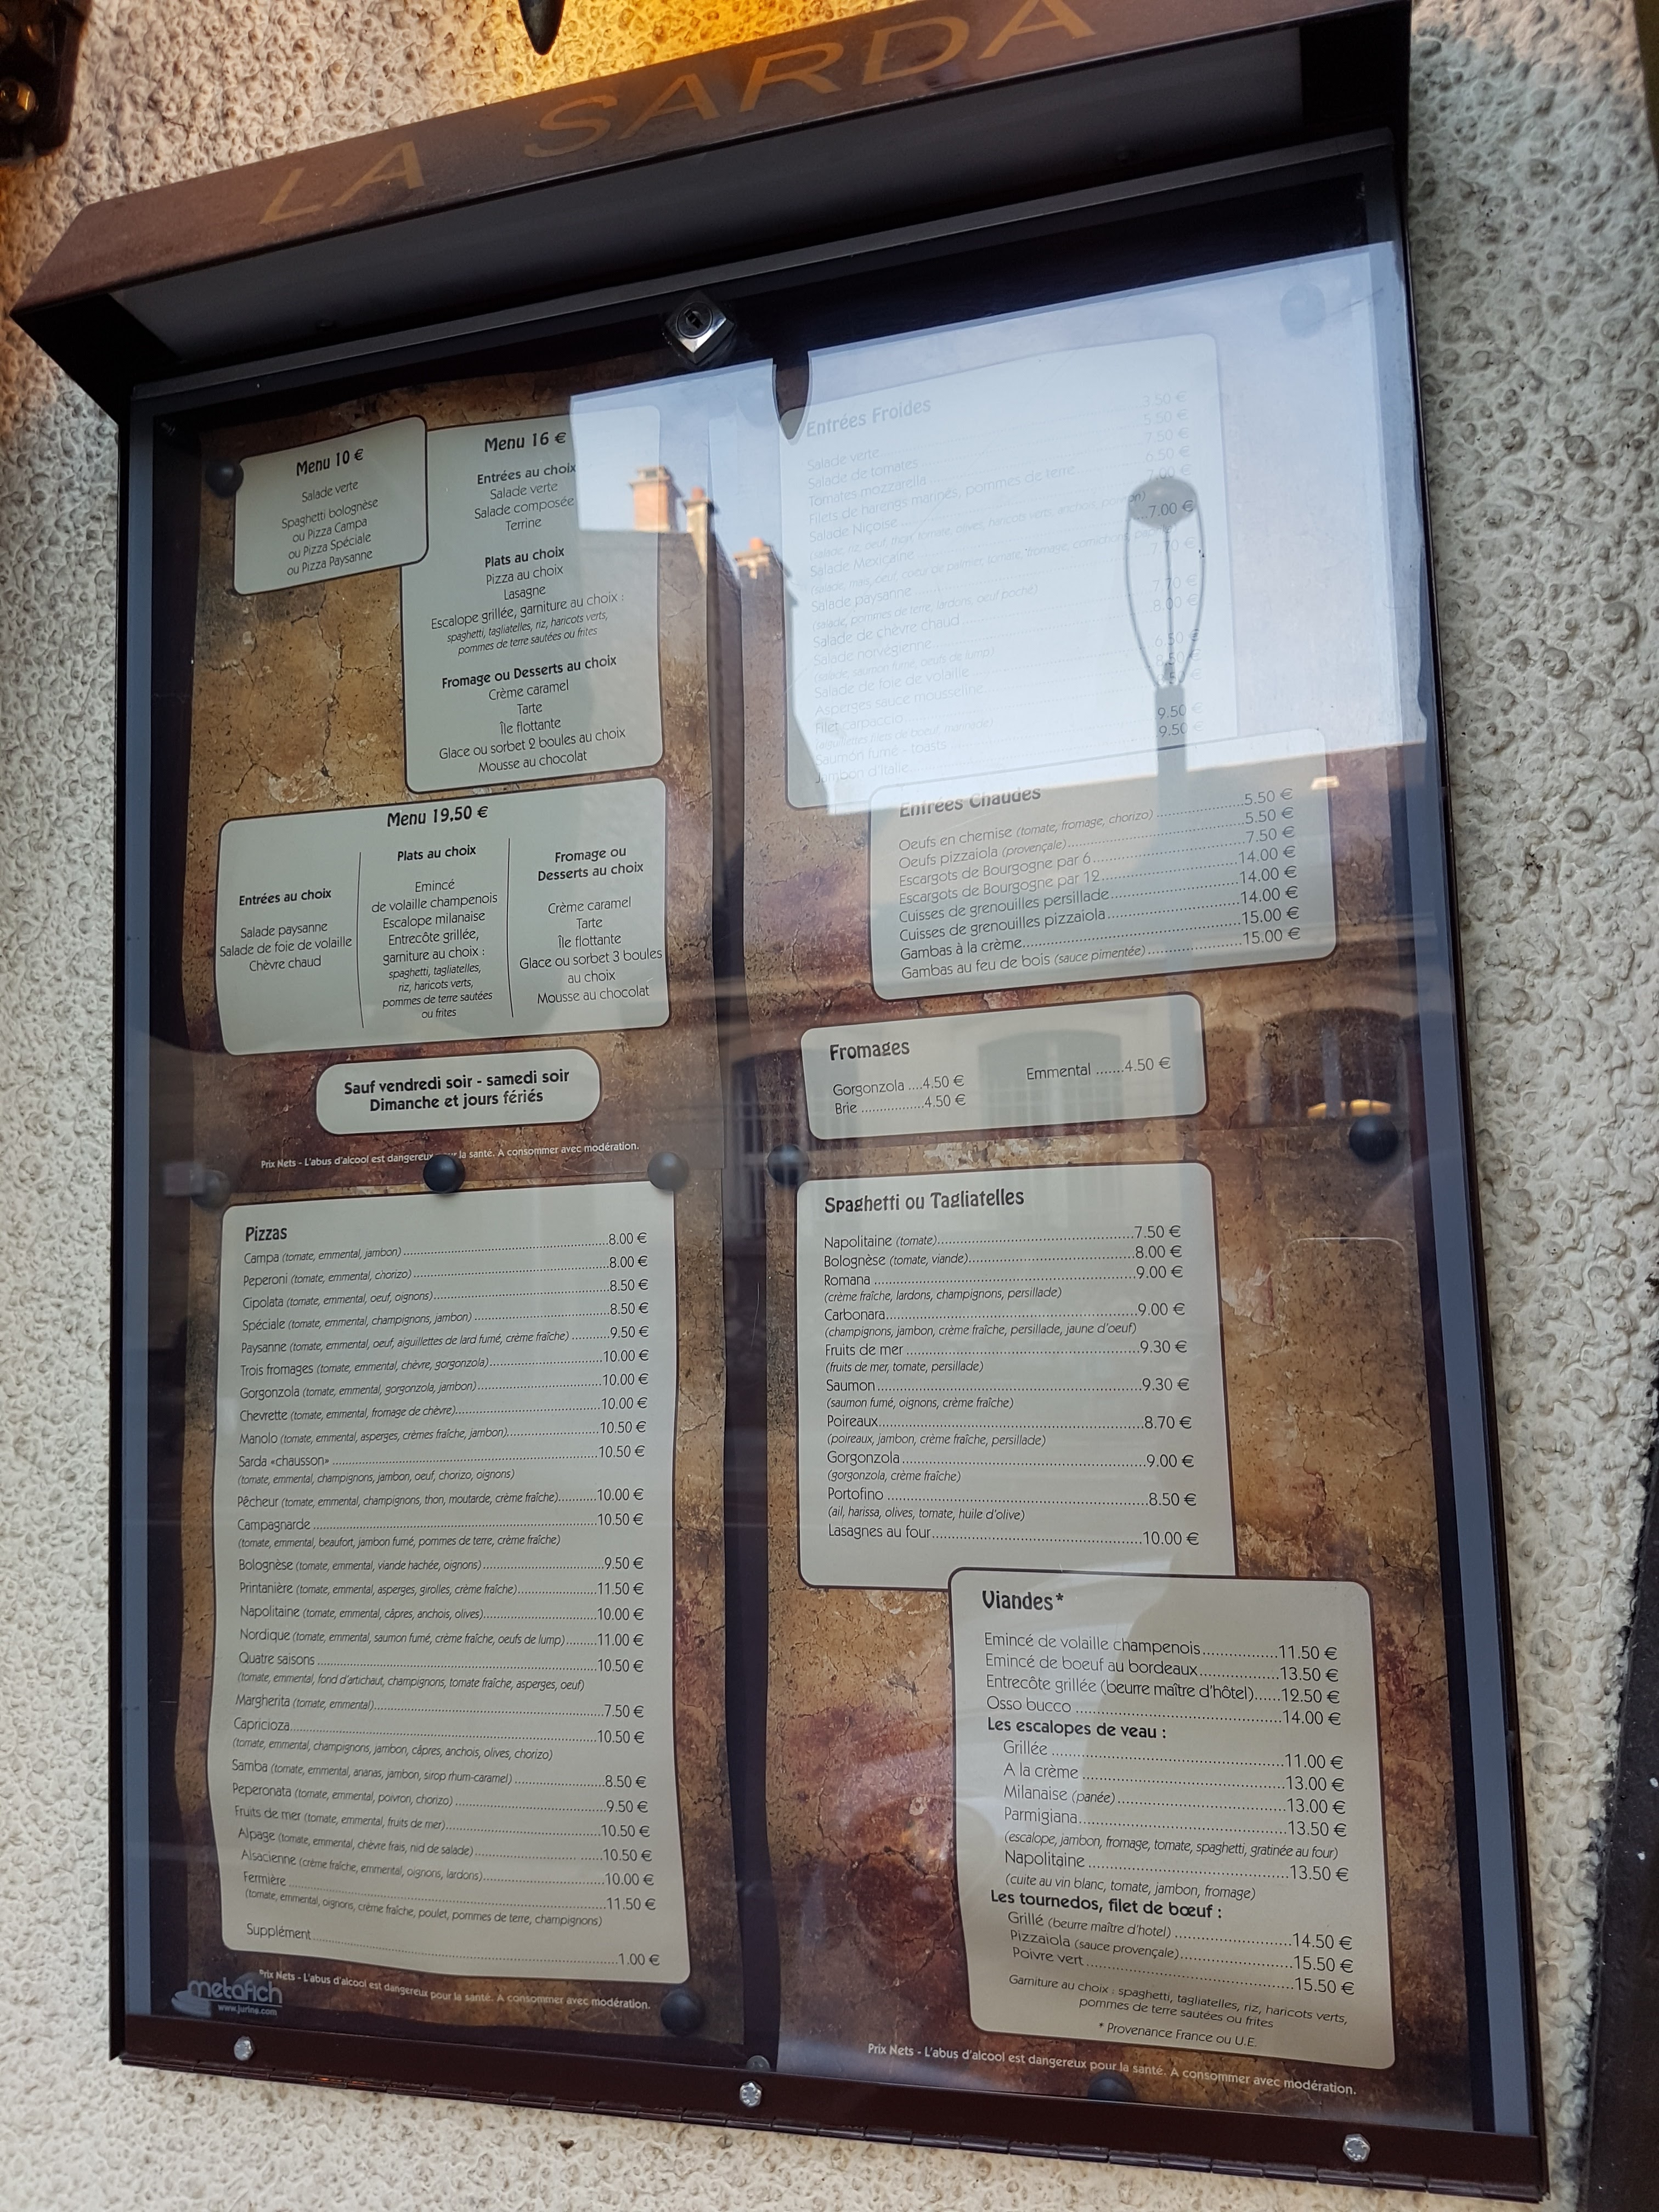 LA SARDA
Menu 10 €
Salade verte
Spaghetti bolognèse
ou Pizza Campa
ou Pizza Spéciale
ou Pizza Paysanne
Menu 16 €
Entrées au choix
Salade verte
Salade composée
Terrine
Plats au choix
Pizza au choix
Lasagne
Escalope grillée, garniture au choix :
spaghetti, tagliatelles, riz, haricots verts,
pommes de terre sautées ou frites
Fromage ou Desserts au choix
Crème caramel
Tarte
Île flottante
Glace ou sorbet 2 boules au choix
Mousse au chocolat
Menu 19.50 €
Entrées au choix
Salade paysanne
Salade de foie de volaille
Chèvre chaud
Plats au choix
Emincé
de volaille champenois
Escalope milanaise
Entrecôte grillée,
garniture au choix :
spaghetti, tagliatelles,
riz, haricots verts,
pommes de terre sautées
ou frites
Fromage ou
Desserts au choix
Crème caramel
Tarte
Île flottante
Glace ou sorbet 3 boules
au choix
Mousse au chocolat
Sauf vendredi soir - samedi soir
Dimanche et jours fériés
Prix Nets - L'abus d'alcool est dangereux la santé. A consommer avec modération.
Pizzas
Campa (tomate, emmental, jambon) 8.00 €
Peperoni (tomate, emmental, chorizo) 8.00 €
Cipolata (tomate, emmental, oeuf, oignons) 8.50 €
Spéciale (tomate, emmental, champignons, jambon) 8.50 €
Paysanne (tomate, emmental, oeuf, aiguillettes de lard fumé, crème fraîche) 9.50 €
Trois fromages (tomate, emmental, chèvre, gorgonzola) 10.00 €
Gorgonzola (tomate, emmental, gorgonzola, jambon) 10.00 €
Chevrette (tomate, emmental, fromage de chèvre) 10.00 €
Manolo (tomate, emmental, asperges, crèmes fraîche, jambon) 10.50 €
Sarda «chausson» 10.50 €
(tomate, emmental, champignons, jambon, oeuf, chorizo, oignons)
Pêcheur (tomate, emmental, champignons, thon, moutarde, crème fraîche) 10.00 €
Campagnarde 10.50 €
(tomate, emmental, beaufort, jambon fumé, pommes de terre, crème fraîche)
Bolognèse (tomate, emmental, viande hachée, oignons) 9.50 €
Printanière (tomate, emmental, asperges, girolles, crème fraîche) 11.50 €
Napolitaine (tomate, emmental, câpres, anchois, olives) 10.00 €
Nordique (tomate, emmental, saumon fumé, crème fraîche, oeufs de lump) 11.00 €
Quatre saisons 10.50 €
(tomate, emmental, fond d'artichaut, champignons, tomate fraîche, asperges, oeuf)
Margherita (tomate, emmental) 7.50 €
Capricioza 10.50 €
(tomate, emmental, champignons, jambon, câpres, anchois, olives, chorizo)
Samba (tomate, emmental, ananas, jambon, sirop rhum-caramel) 8.50 €
Peperonata (tomate, emmental, poivron, chorizo) 9.50 €
Fruits de mer (tomate, emmental, fruits de mer) 10.50 €
Alpage (tomate, emmental, chèvre frais, nid de salade) 10.50 €
Alsacienne (crème fraîche, emmental, oignons, lardons) 10.00 €
Fermière 11.50 €
(tomate, emmental, oignons, crème fraîche, poulet, pommes de terre, champignons)
Supplément 1.00 €
metafich
www.jurine.com
Prix Nets - L'abus d'alcool est dangereux pour la santé. A consommer avec modération.
Entrées Froides
Salade verte 3.50 €
Salade de tomates 5.50 €
Tomates mozzarella 7.50 €
Filets de harengs marinés, pommes de terre 6.50 €
Salade Niçoise 7.00 €
(salade, riz, oeuf, thon, tomate, haricots verts, anchois, poivron)
Salade Mexicaine 7.00 €
Salade paysanne 7.70 €
(salade, pommes de terre, lardons, oeuf poché)
Salade de chèvre chaud 7.70 €
Salade norvégienne 8.00 €
(salade, saumon fumé, oeufs de lump)
Salade de foie de volaille 6.50 €
Asperges sauce mousseline
Filet carpaccio
Saumon fumé - toasts 9.50 €
Jambon d'Italie 9.50 €
Entrées Chaudes
Oeufs en chemise (tomate, fromage, chorizo) 5.50 €
Oeufs pizzaiola (provençale) 5.50 €
Escargots de Bourgogne par 6 7.50 €
Escargots de Bourgogne par 12 14.00 €
Cuisses de grenouilles persillade 14.00 €
Cuisses de grenouilles pizzaiola 14.00 €
Gambas à la crème 15.00 €
Gambas au feu de bois (sauce pimentée) 15.00 €
Fromages
Gorgonzola ....4.50 €
Brie 4.50 €
Emmental .......4.50 €
Spaghetti ou Tagliatelles
Napolitaine (tomate) 7.50 €
Bolognèse (tomate, viande) 8.00 €
Romana 9.00 €
(crème fraîche, lardons, champignons, persillade)
Carbonara 9.00 €
(champignons, jambon, crème fraîche, persillade, jaune d'oeuf)
Fruits de mer 9.30 €
(fruits de mer, tomate, persillade)
Saumon 9.30 €
(saumon fumé, oignons, crème fraîche)
Poireaux 8.70 €
(poireaux, jambon, crème fraîche, persillade)
Gorgonzola 9.00 €
(gorgonzola, crème fraîche)
Portofino 8.50 €
(ail, harissa, olives, tomate, huile d'olive)
Lasagnes au four 10.00 €
Viandes*
Emincé de volaille champenois 11.50 €
Emincé de boeuf au bordeaux 13.50 €
Entrecôte grillée (beurre maître d'hôtel) 12.50 €
Osso bucco 14.00 €
Les escalopes de veau :
Grillée 11.00 €
A la crème 13.00 €
Milanaise (panée) 13.00 €
Parmigiana 13.50 €
(escalope, jambon, fromage, tomate, spaghetti, gratinée au four)
Napolitaine 13.50 €
(cuite au vin blanc, tomate, jambon, fromage)
Les tournedos, filet de bœuf :
Grillé (beurre maître d'hotel) 14.50 €
Pizzaiola (sauce provençale) 15.50 €
Poivre vert 15.50 €
Garniture au choix : spaghetti, tagliatelles, riz, haricots verts,
pommes de terre sautées ou frites
* Provenance France ou U.E.
Prix Nets - L'abus d'alcool est dangereux pour la santé. A consommer avec modération.